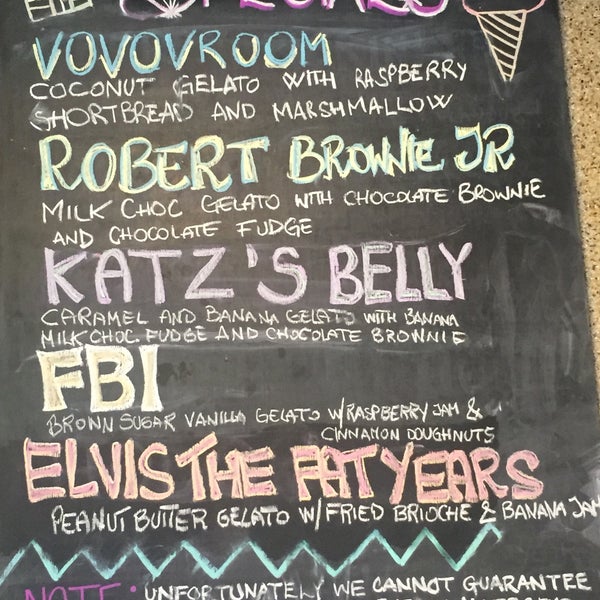 SPECIALS
VOVOVROOM
COCONUT GELATO WITH RASPBERRY
SHORTBREAD AND MARSHMALLOW
ROBERT BROWNIE JR
MILK CHOC GELATO WITH CHOCOLATE BROWNIE
AND CHOCOLATE FUDGE
KATZ'S BELLY
CARAMEL AND BANANA GELATO WITH BANANA
MILK CHOC FUDGE AND CHOCOLATE BROWNIE
FBI
BROWN SUGAR VANILLA GELATO W/RASPBERRY JAM &
CINNAMON DOUGHNUTS
ELVIS THE FAT YEARS
PEANUT BUTTER GELATO W/ FRIED BRIOCHE & BANANA JAM
NOTE: UNFORTUNATELY WE CANNOT GUARANTEE